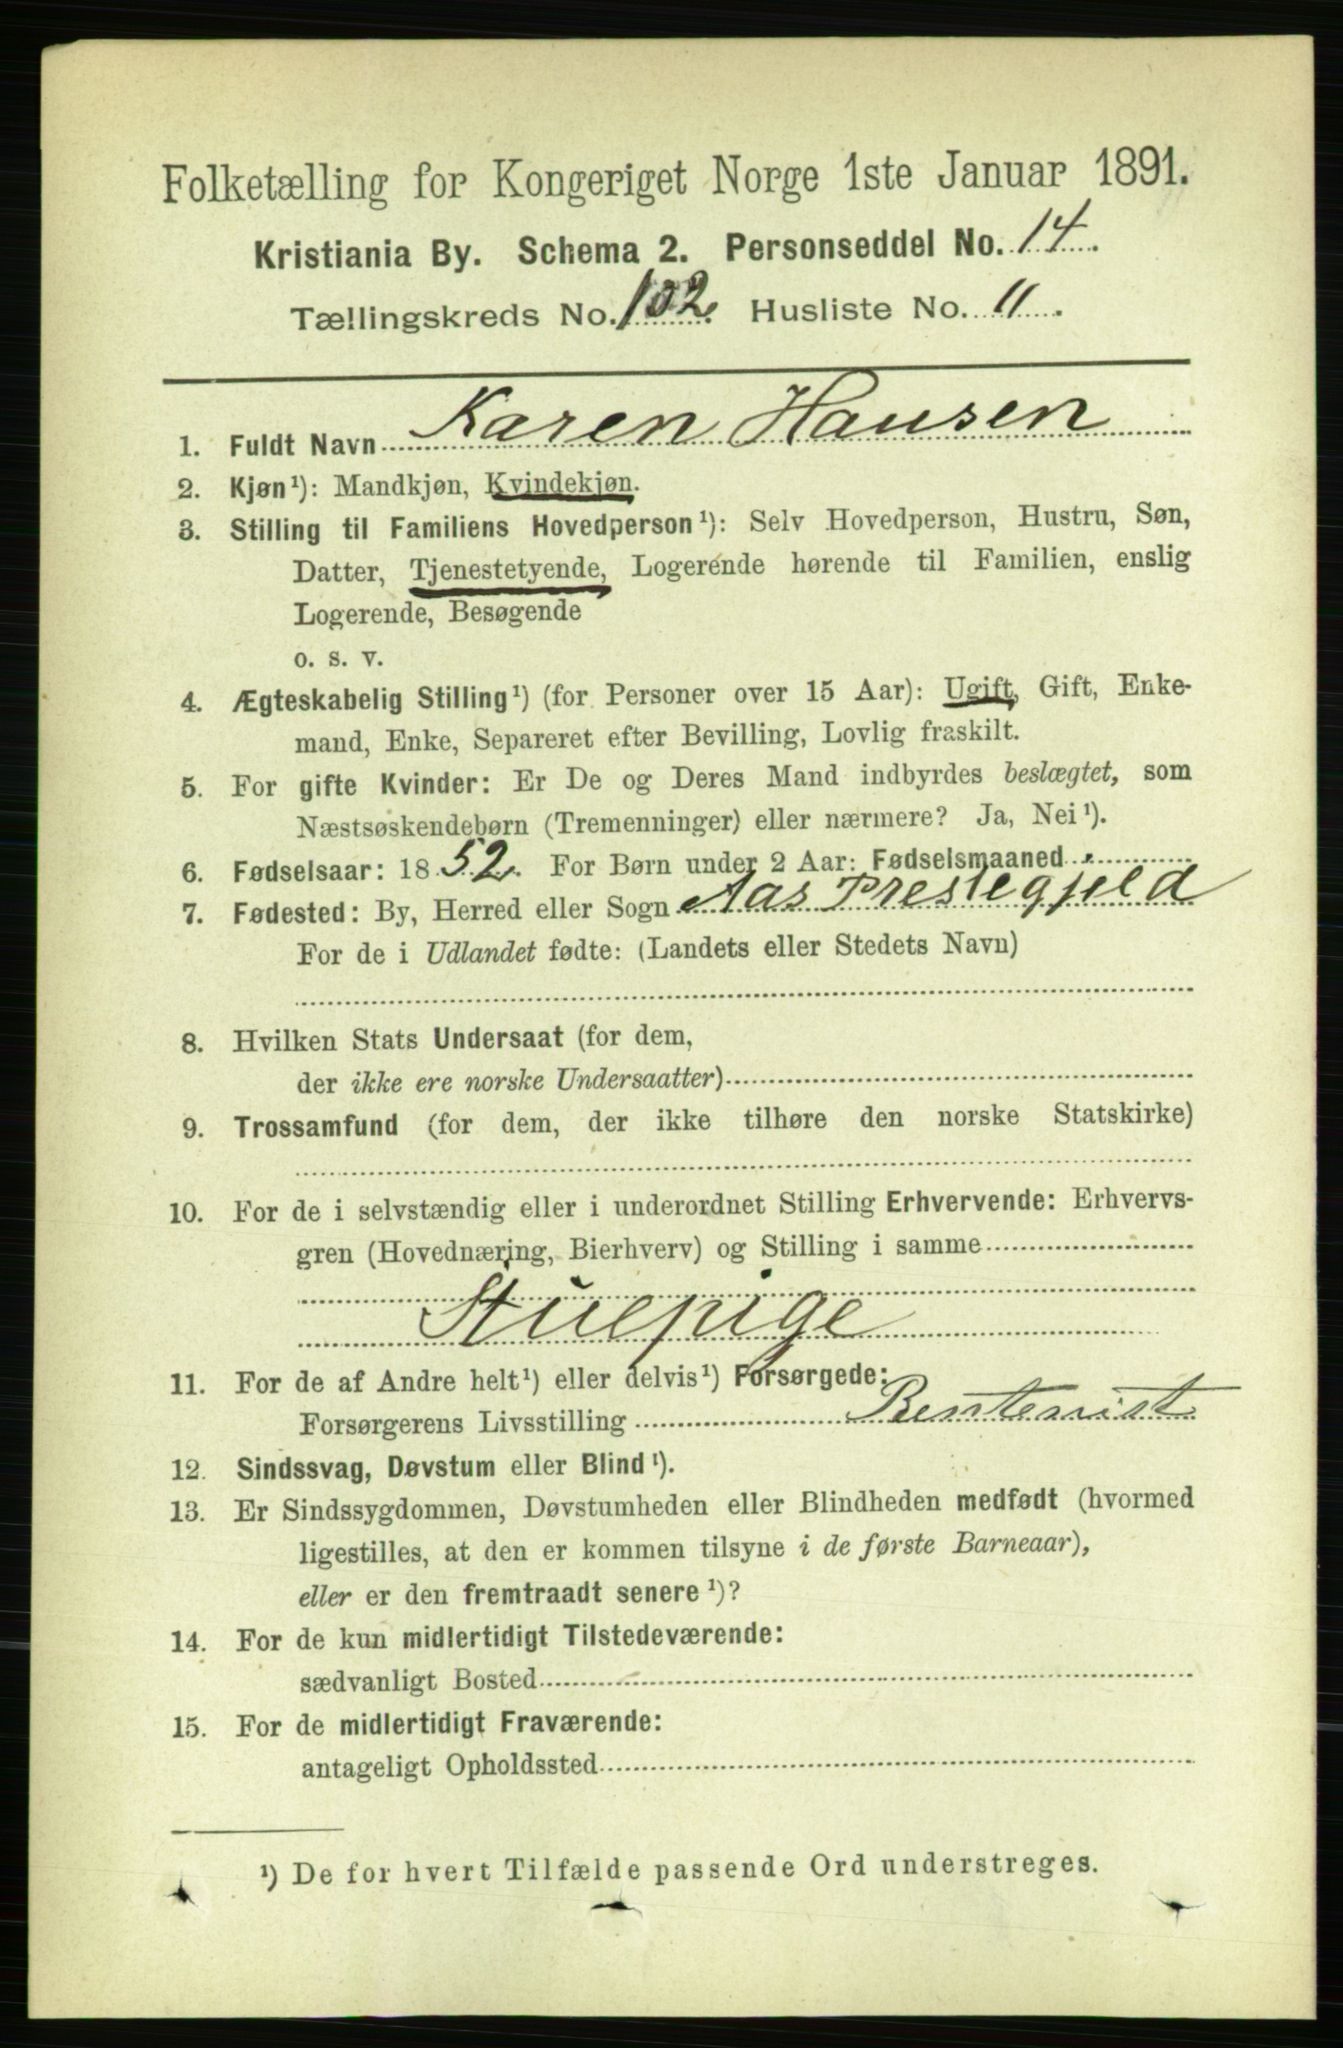 Folketælling for Kongeriget Norge 1ste Januar 1891.
Kristiania By. Schema 2. Personseddel No. 14.
Tællingskreds No. 102. Husliste No. 11.
1. Fuldt Navn Karen Hansen
2. Kjøn¹): Mandkjøn, Kvindekjøn.
3. Stilling til Familiens Hovedperson¹): Selv Hovedperson, Hustru, Søn,
Datter, Tjenestetyende, Logerende hørende til Familien, enslig
Logerende, Besøgende
o. s. v.
4. Ægteskabelig Stilling¹) (for Personer over 15 Aar): Ugift, Gift, Enke-
mand, Enke, Separeret efter Bevilling, Lovlig fraskilt.
5. For gifte Kvinder: Er De og Deres Mand indbyrdes beslægtet, som
Næstsøskendebørn (Tremenninger) eller nærmere? Ja, Nei¹).
6. Fødselsaar: 1852. For Børn under 2 Aar: Fødselsmaaned
7. Fødested: By, Herred eller Sogn Aas Prestegjeld
For de i Udlandet fødte: (Landets eller Stedets Navn)
8. Hvilken Stats Undersaat (for dem,
der ikke ere norske Undersaatter)
9. Trossamfund (for dem, der ikke tilhøre den norske Statskirke)
10. For de i selvstændig eller i underordnet Stilling Erhvervende: Erhvervs-
gren (Hovednæring, Bierhverv) og Stilling i samme
Stuepige
11. For de af Andre helt¹) eller delvis¹) Forsørgede:
Forsørgerens Livsstilling Rentenist
12. Sindssvag, Døvstum eller Blind¹).
13. Er Sindssygdommen, Døvstumheden eller Blindheden medfødt (hvormed
ligestilles, at den er kommen tilsyne i de første Barneaar),
eller er den fremtraadt senere¹)?
14. For de kun midlertidigt Tilstedeværende:
sædvanligt Bosted
15. For de midlertidigt Fraværende:
antageligt Opholdssted
¹) De for hvert Tilfælde passende Ord understreges.